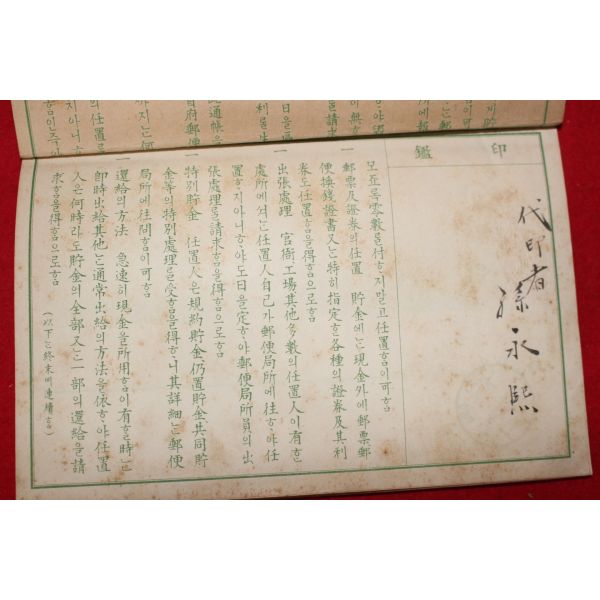 印鑑
代印者 孫永熙
모죠록零數를付ᄒᆞ지말고任置ᄒᆞᆷ이可ᄒᆞᆷ
一 郵票及證券의任置 貯金에ᄂᆞᆫ現金外에郵票郵
便換錢證書又ᄂᆞᆫ特히指定ᄒᆞᆫ各種의證券及其利
券도任置ᄒᆞᆷ을得ᄒᆞᆷ으로ᄒᆞᆷ
一 出張處理 官衙工場其他多數의任置人이有ᄒᆞᆫ
處所에셔ᄂᆞᆫ任置人自己가郵便局所에往ᄒᆞ야任
置ᄒᆞ지아니ᄒᆞ야도日을定ᄒᆞ야郵便局所員의出
張處理를請求ᄒᆞᆷ을得ᄒᆞᆷ으로ᄒᆞᆷ
一 特別貯金 任置人은規約貯金仍置貯金共同貯
金等의特別處理를受ᄒᆞᆷ을得ᄒᆞ니其詳細ᄂᆞᆫ郵便
局所에往問ᄒᆞᆷ이可ᄒᆞᆷ
一 還給의方法 急速히現金을所用ᄒᆞᆷ이有ᄒᆞᆯ時ᄂᆞᆫ
卽時出給其他ᄂᆞᆫ通常出給의方法을依ᄒᆞ야任置
人은何時라도貯金의全部又ᄂᆞᆫ一部의還給을請
求ᄒᆞᆷ을得ᄒᆞᆷ으로ᄒᆞᆷ
(以下ᄂᆞᆫ終末에連續ᄒᆞᆷ)